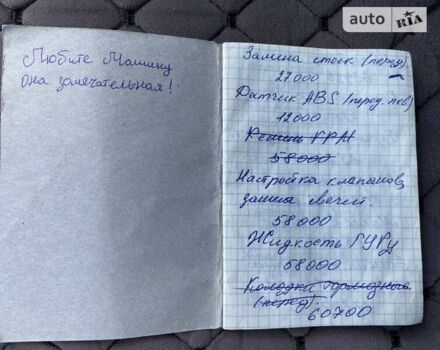 auto RIA
Любите Машину
она замечательная!
Замена стоек (перед).
27.000
Датчик ABS (перед. лев)
12000
Ремень ГРМ
58000
Настройка клапанов,
замена свечей.
58000
Жидкость ГУРу
58000
Колодки тормозные
(перед).
60700